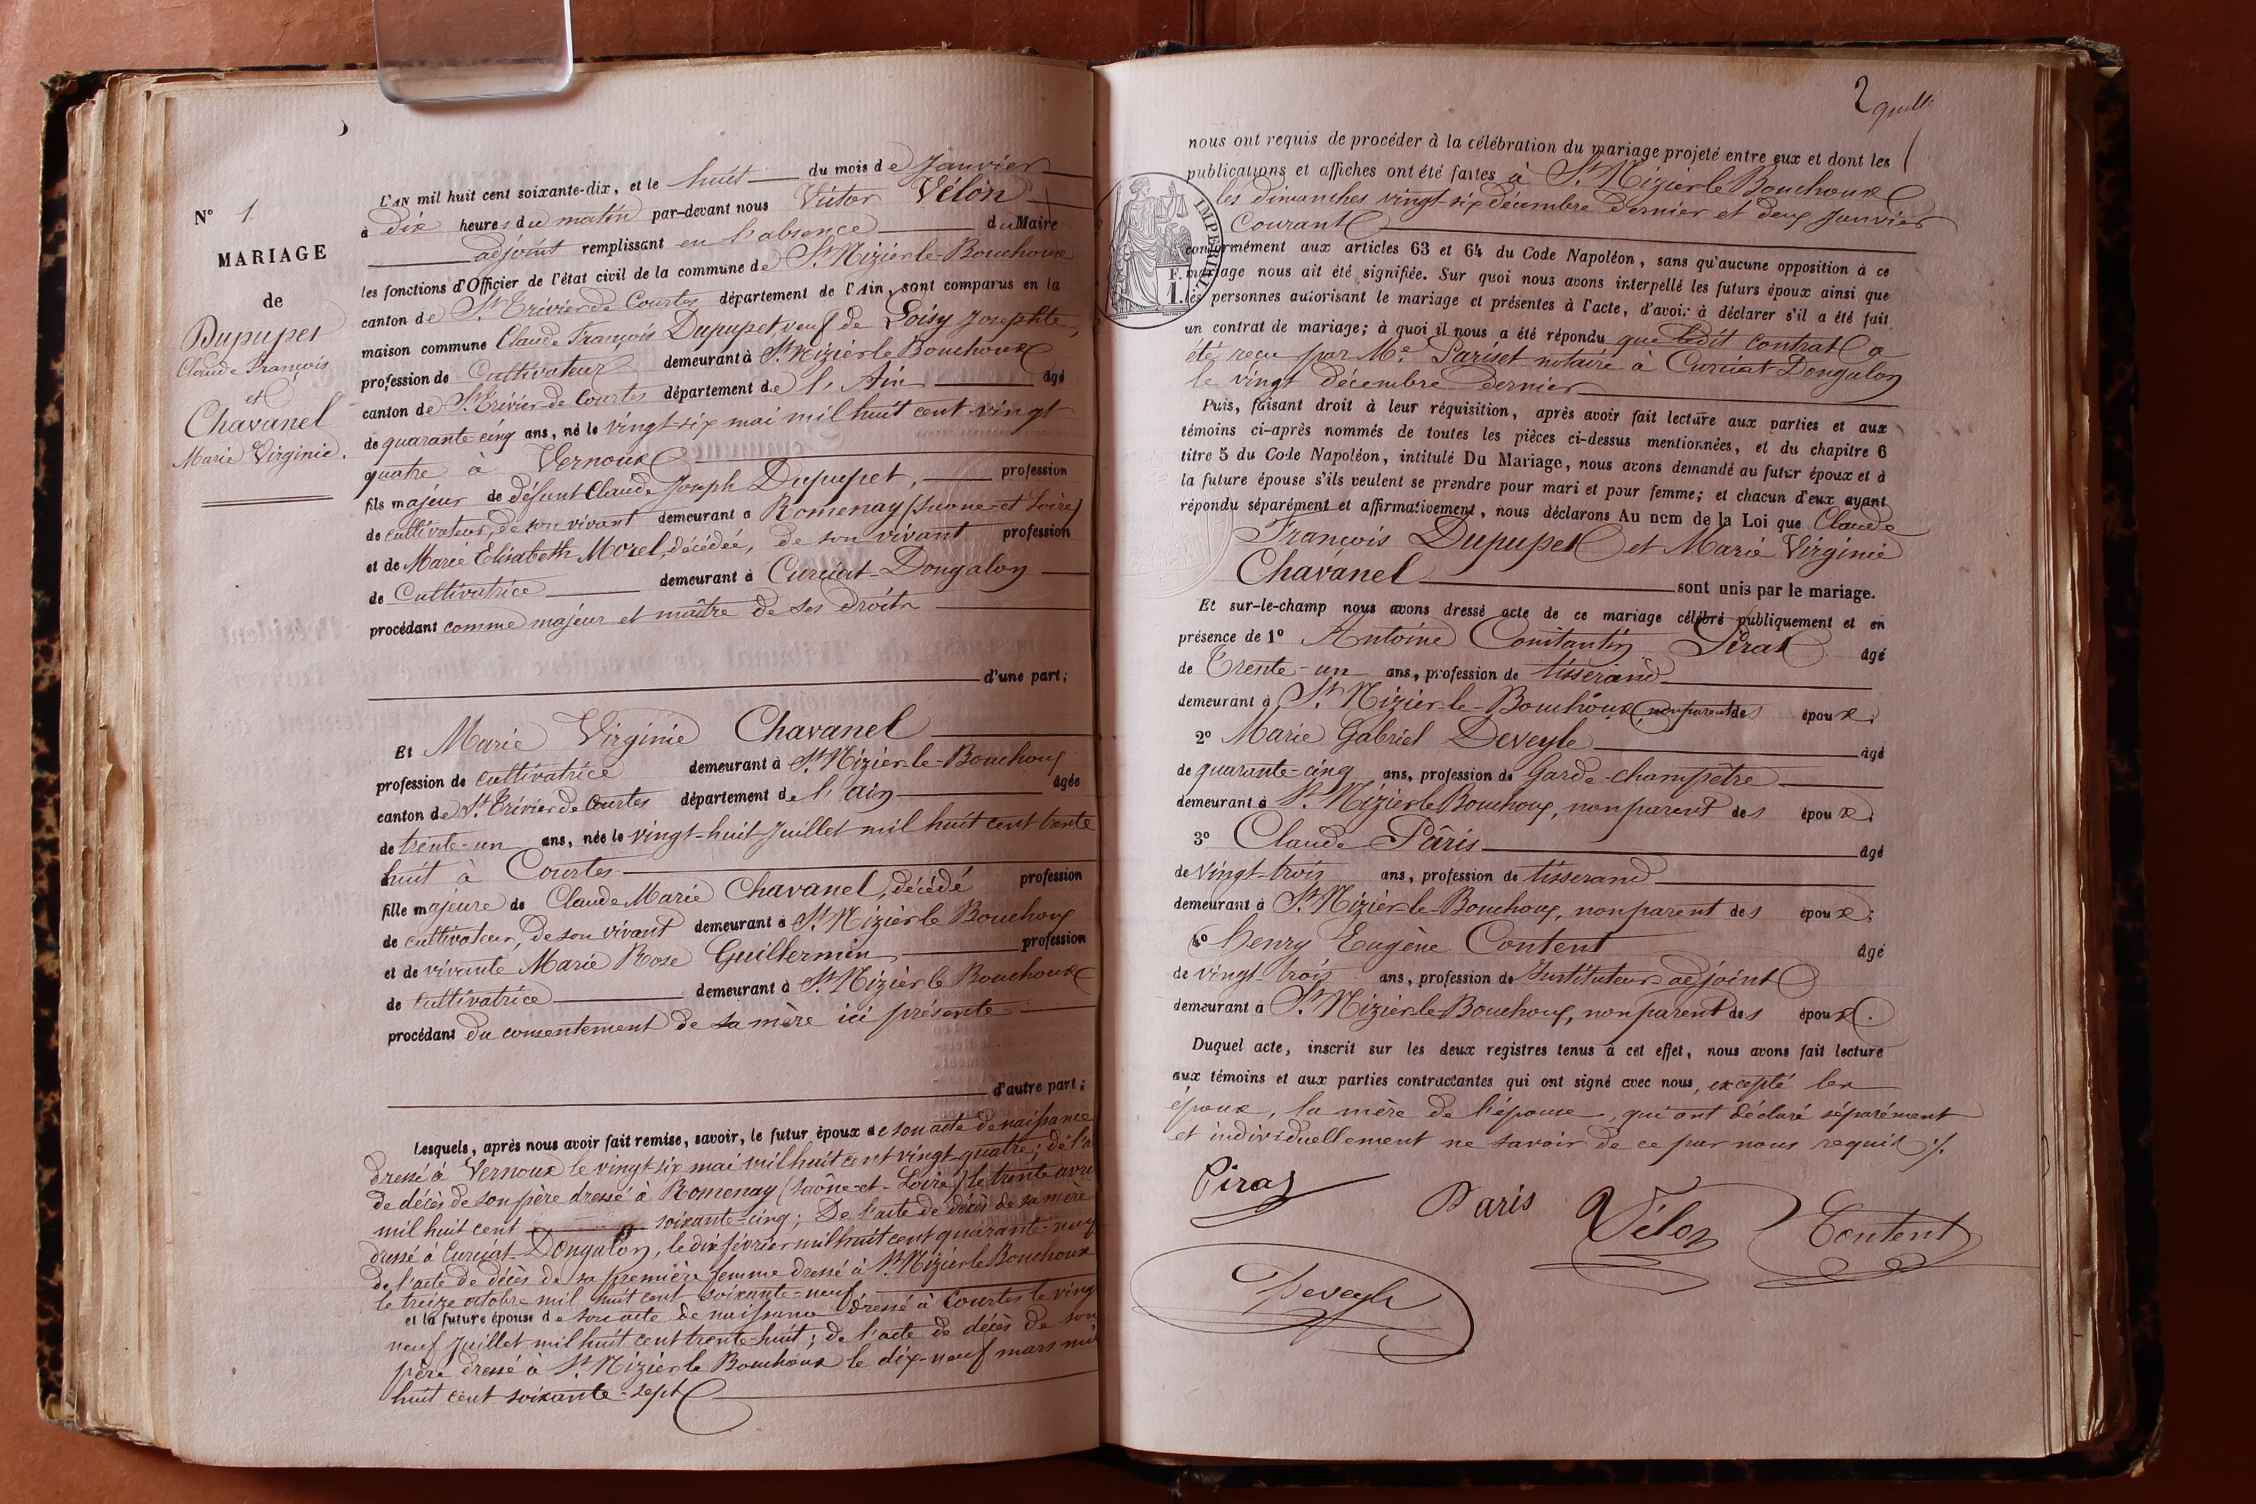 N° 1
MARIAGE
de
Dupupet
Claude François
et
Chavanel
Marie Virginie.
L'AN mil huit cent soixante-dix, et le huit du mois de Janvier
à dix heures du matin par-devant nous Victor Vélon
adjoint remplissant en l'absence du Maire
les fonctions d'Officier de l'état civil de la commune de St Nizier le Bouchoux
canton de St Trivier de Courtes département de l'Ain, sont comparus en la
maison commune Claude François Dupupet veuf de Loisy Josephte,
profession de Cultivateur demeurant à St Nizier le Bouchoux
canton de St Trivier de Courtes département de l'Ain âgé
de quarante cinq ans, né le vingt-six mai mil huit cent vingt
quatre à Vernoux
fils majeur de défunt Claude Joseph Dupupet, profession
de cultivateur, de son vivant demeurant à Romenay (Saône-et-Loire)
et de Marie Elisabeth Morel, décédée, de son vivant profession
de Cultivatrice demeurant à Curciat-Dongalon
procédant comme majeur et maître de ses droits
d'une part;
Et Marie Virginie Chavanel
profession de cultivatrice demeurant à St Nizier-le-Bouchoux
canton de St Trivier de Courtes département de l'Ain âgée
de trente-un ans, née le vingt-huit Juillet mil huit cent trente
huit à Courtes
fille majeure de Claude Marie Chavanel, décédé profession
de cultivateur, de son vivant demeurant à St Nizier le Bouchoux
et de vivante Marie Rose Guillermin profession
de cultivatrice demeurant à St Nizier le Bouchoux
procédant du consentement de sa mère ici présente
d'autre part;
Lesquels, après nous avoir fait remise, savoir, le futur époux de son acte de naissance
dressé à Vernoux le vingt-six mai mil huit cent vingt-quatre; de l'a
de décès de son père dressé à Romenay (Saône-et-Loire) le trente avril
mil huit cent soixante-cinq; De l'acte de décès de sa mère
dressé à Curciat-Dongalon, le dix février mil huit cent quarante-neuf
de l'acte de décès de sa première femme dressé à St Nizier le Bouchoux
le treize octobre mil huit cent soixante-neuf
et la future épouse de son acte de naissance dressé à Courtes le vingt
neuf Juillet mil huit cent trente-huit; de l'acte de décès de son
père dressé à St Nizier le Bouchoux le dix-neuf mars mil
huit cent soixante-sept
2
nous ont requis de procéder à la célébration du mariage projeté entre eux et dont les
publications et affiches ont été faites à St Nizier le Bouchoux
les dimanches vingt six décembre dernier et deux Janvier
Courant
conformément aux articles 63 et 64 du Code Napoléon, sans qu'aucune opposition à ce
mariage nous ait été signifiée. Sur quoi nous avons interpellé les futurs époux ainsi que
les personnes autorisant le mariage et présentes à l'acte, d'avoir à déclarer s'il a été fait
un contrat de mariage; à quoi il nous a été répondu que ledit contrat a
été reçu par Me Pariset notaire à Curciat Dongalon
le vingt décembre dernier
Puis, faisant droit à leur réquisition, après avoir fait lecture aux parties et aux
témoins ci-après nommés de toutes les pièces ci-dessus mentionnées, et du chapitre 6
titre 5 du Code Napoléon, intitulé Du Mariage, nous avons demandé au futur époux et à
la future épouse s'ils veulent se prendre pour mari et pour femme; et chacun d'eux ayant
répondu séparément et affirmativement, nous déclarons Au nom de la Loi que Claude
François Dupupet et Marie Virginie
Chavanel sont unis par le mariage.
Et sur-le-champ nous avons dressé acte de ce mariage célébré publiquement et en
présence de 1° Antoine Constantin Piraz âgé
de Trente-un ans, profession de tisserand
demeurant à St Nizier-le-Bouchoux, non parent des époux.
2° Marie Gabriel Deveyle âgé
de quarante-cinq ans, profession de Garde-champêtre
demeurant à St Nizier le Bouchoux, non parent des époux.
3° Claude Pâris âgé
de Vingt-trois ans, profession de tisserand
demeurant à St Nizier-le-Bouchoux, non parent des époux;
4° Henry Eugène Content âgé
de vingt-trois ans, profession de Instituteur-adjoint
demeurant à St Nizier le Bouchoux, non parent des époux.
Duquel acte, inscrit sur les deux registres tenus à cet effet, nous avons fait lecture
aux témoins et aux parties contractantes qui ont signé avec nous, excepté les
époux, la mère de l'épouse, qui ont déclaré séparément
et individuellement ne savoir de ce par nous requis ./.
Piraz
Paris
Vélon
Content
Deveyle